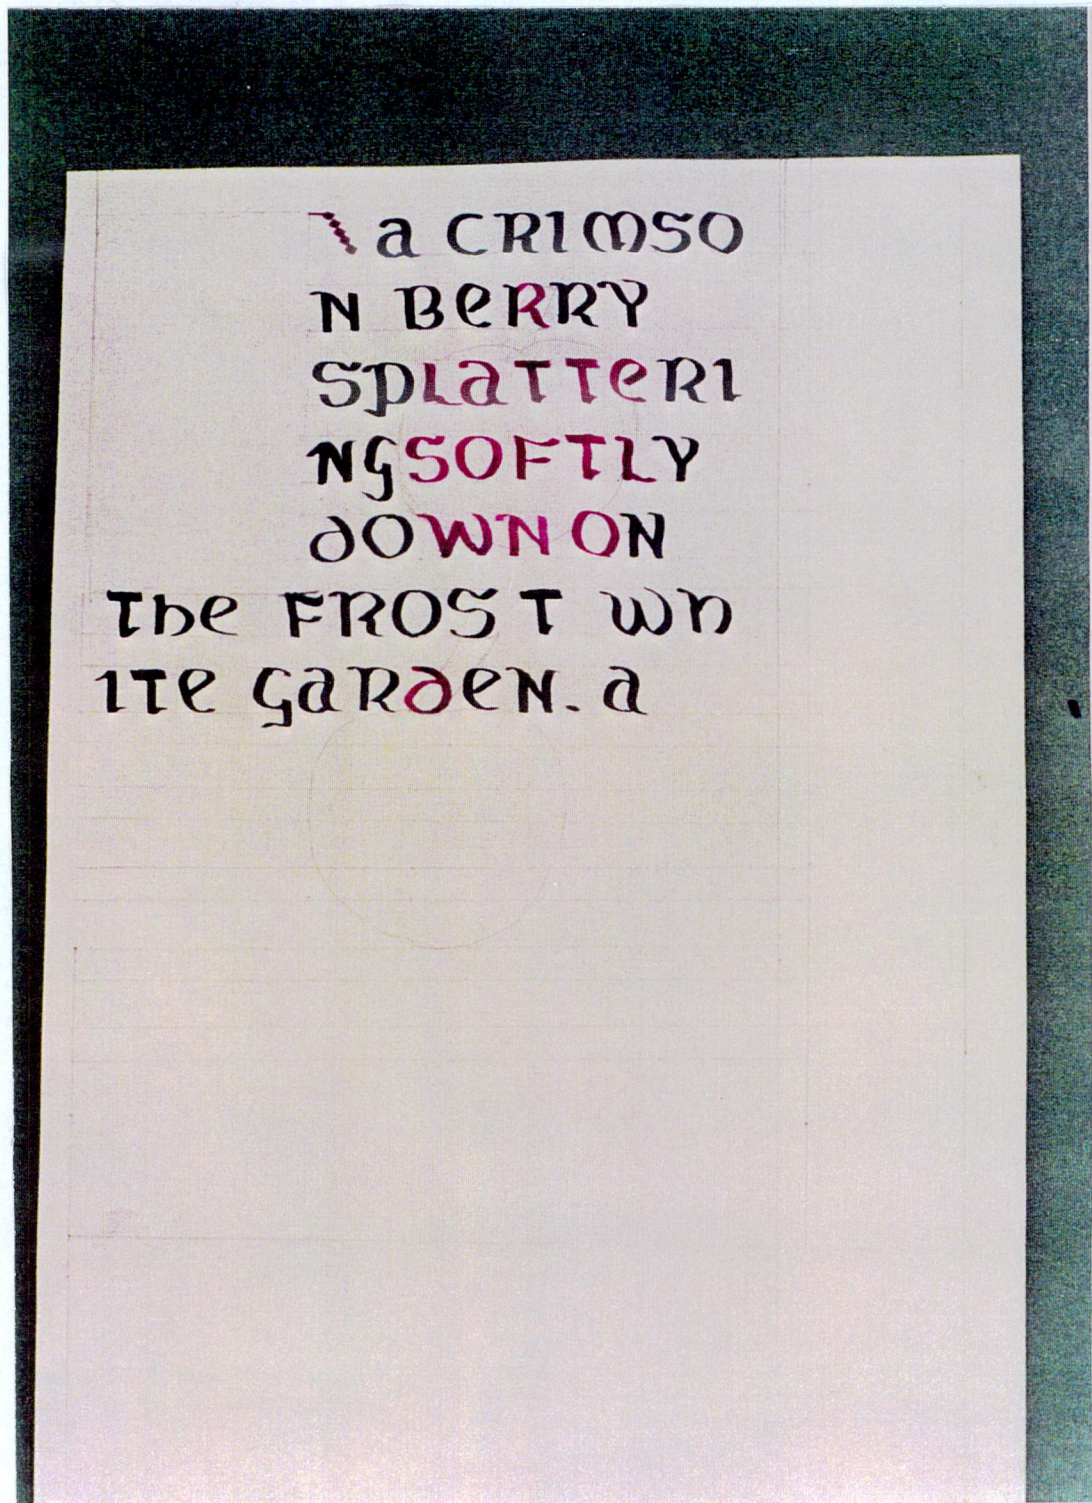 a CRIMSO
N BeRRY
SpLaTTeRI
NGSOFTLY
dOWN ON
The FROS T Wh
ITe GaRdeN. a